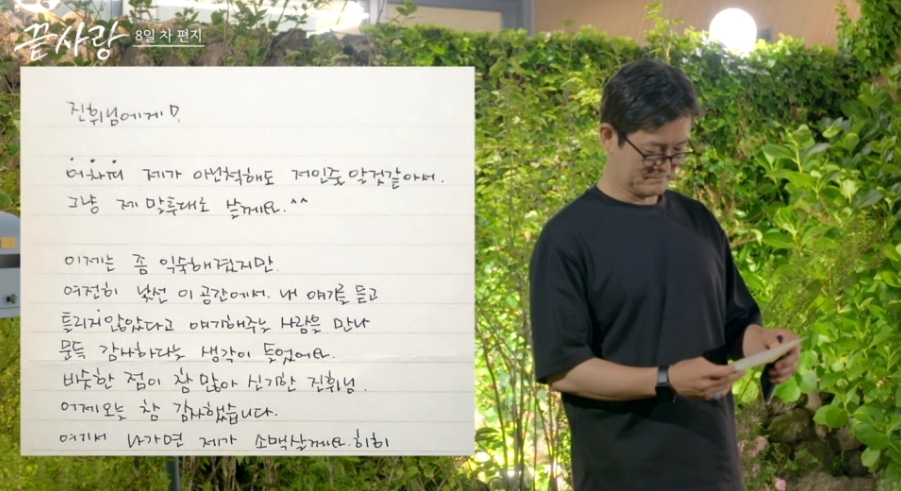 끝사랑 8일 차 편지
진휘님에게!
어차피 제가 아닌척해도 저인줄 알것같아서.
그냥 제 말투대로 쓸게요.^^
이제는 좀 익숙해졌지만
여전히 낯선 이 공간에서. 내 얘기를 듣고
틀리지않았다고 얘기해주는 사람을 만나
문득 감사하다는 생각이 들었어요.
비슷한 점이 참 많아 신기한 진휘님.
어제오늘 참 감사했습니다.
여기서 나가면 제가 소맥살께요. 히히